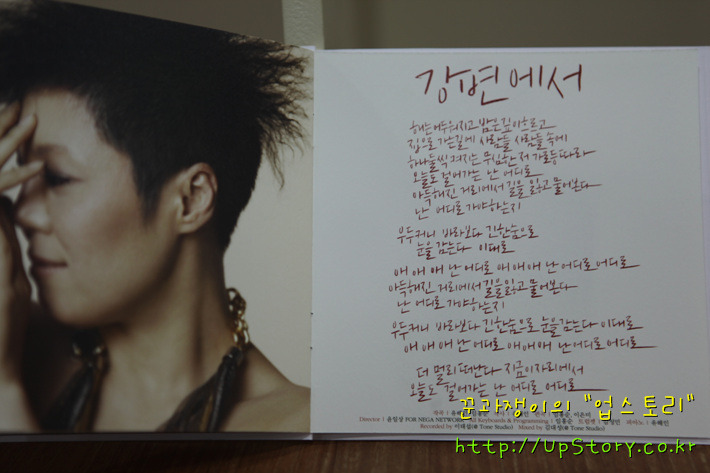 강변에서
해는 어두워지고 밤은 깊이 흐르고
집으로 가는 길에 사람들 사람들 속에
하나 둘씩 켜지는 무심한 저 가로등 따라
오늘도 걸어가는 난 어디로
아득해진 거리에서 길을 잃고 물어본다
난 어디로 가야하는지
우두커니 바라보다 긴 한숨으로
눈을 감는다 이대로
애 애 애 난 어디로 애 애 애 난 어디로 어디로
아득해진 거리에서 길을 잃고 물어본다
난 어디로 가야하는지
우두커니 바라보다 긴 한숨으로 눈을 감는다 이대로
애 애 애 난 어디로 애 애 애 난 어디로 어디로
더 멀리 떠난다 지금 이 자리에서
오늘도 걸어가는 난 어디로 어디로
Director | 윤일상 FOR NEGA NETWORK Keyboards & Programming | 임홍순 트럼펫 피아노 | 유해인
Recorded by 이태섭(@ Tone Studio) Mixed by 김대성(@ Tone Studio)
꾼과쟁이의 "업스토리"
http://UpStory.co.kr